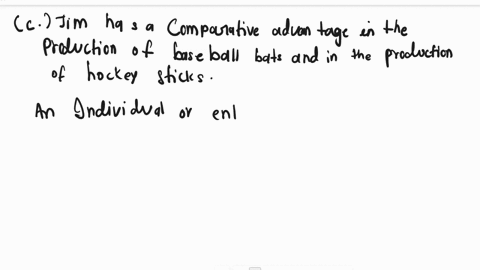 (c.) Jim has a Comparative advantage in the
Production of baseball bats and in the production
of hockey sticks.
An Individual or ent